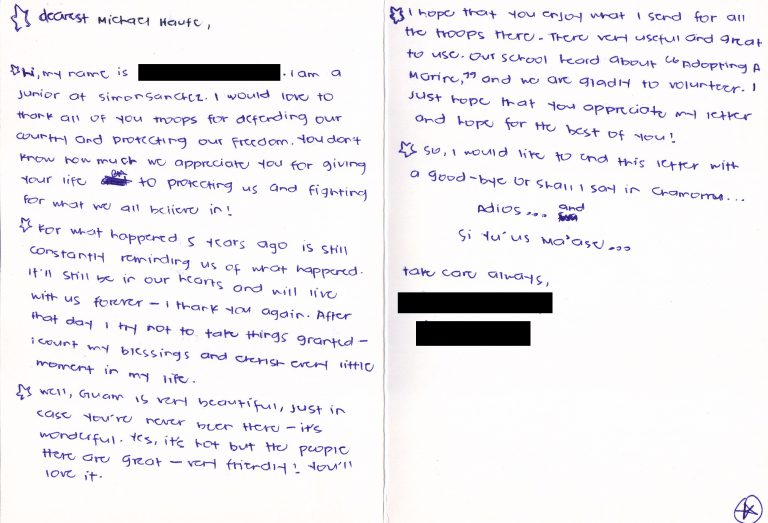 dearest Michael Haufe,
Hi, my name is . I am a
junior at simonsanchez. I would love to
thank all of you troops for defending our
country and protecting our freedom. You don't
know how much we appreciate you for giving
your life to protecting us and fighting
for what we all believe in!
For what happened 5 years ago is still
constantly reminding us of what happened.
It'll still be in our hearts and will live
with us forever - I thank you again. After
that day I try not to take things granted -
I count my blessings and cherish every little
moment in my life.
Well, Guam is very beautiful, just in
case you're never been there - it's
wonderful. Yes, it's hot but the people
there are great - very friendly! You'll
love it.
I hope that you enjoy what I send for all
the troops there. There very useful and great
to use. Our school heard about "Adopting A
Marine," and we are gladly to volunteer. I
just hope that you appreciate my letter
and hope for the best of you!
So, I would like to end this letter with
a good-bye or shall I say in Chamorru...
Adios... and
Si Yu'us Ma'ase...
take care always,